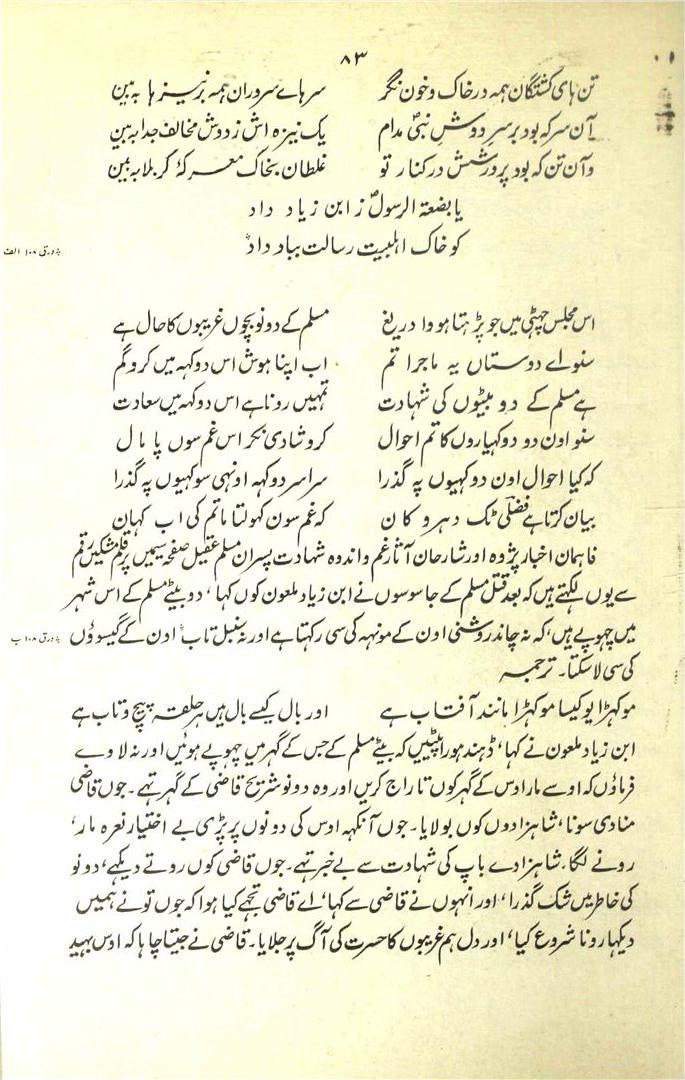 ۸۳
تن ہای کشتگان ہمہ در خاک و خون نگر سرہاے سروران ہمہ بر نیزہا بہ بین
آن سر کہ بود بر سرِ دوشِ نبیؐ مدام یک نیزہ اش ز دوش مخالف جدا بہ بین
و آن تن کہ بود پرورشش در کنار تو غلطان بخاک معرکۂ کربلا بہ بین
یا بضعۃ الرسولؐ ز ابن زیاد داد
کو خاک اہلبیت رسالت بباد داد
ورق ۱۰۸ الف
اس مجلس چہٹی میں جو پڑہتا ہو وا دریغ مسلم کے دونو بچوں غریبوں کا حال ہے
سنو اے دوستاں یہ ماجرا تم اب اپنا ہوش اس دوکہہ میں کرو گم
ہے مسلم کے دو بیٹوں کی شہادت تمہیں رونا ہے اس دوکہہ میں سعادت
سنو اون دو دوکہیاروں کا تم احوال کرو شادی نکر اس غم سوں پامال
کہ کیا احوال اون دوکہیوں پہ گذرا سراسر دوکہہ اونہی سوکہیوں پہ گذرا
بیان کرتا ہے فضلیؔ ٹک دہرو کان کہ غم سون کہولتا ماتم کی اب کہان
فاہمان اخبار پژوہ اور شارحان آثار غم و اندوہ شہادت پسران مسلم عقیل صفحہ سیمیں پر قلم مشکیں رقم
سے یوں لکہتے ہیں کہ بعد قتل مسلم کے جاسوسوں نے ابن زیاد ملعون کوں کہا، دو بیٹے مسلم کے اس شہر
میں چہوپے ہیں، کہ نہ چاند روشنی اون کے مونہہ کی سی رکہتا ہے اور نہ سنبل تاب اون کے گیسوؤں
ورق ۱۰۸ ب
کی سی لا سکتا۔ ترجمہ
موکہڑا یو کیسا موکہڑا مانند آفتاب ہے اور بال کیسے بال ہیں ہر حلقہ پیچ و تاب ہے
ابن زیاد ملعون نے کہا، ڈہنڈہورا پٹیں کہ بیٹے مسلم کے جس کے گہر میں چہوپے ہوئیں اور نہ لاوے
فرماؤں کہ اوسے مار اوس کے گہر کوں تاراج کریں اور وہ دونو شریح قاضی کے گہر تہے۔ جوں قاضی
منادی سونا، شاہزادوں کوں بولایا۔ جوں آنکہہ اوس کی دونوں پر پڑی بے اختیار نعرہ مار،
رونے لگا۔ شاہزادے باپ کی شہادت سے بے خبر تہے۔ جوں قاضی کوں روتے دیکہے، دونو
کی خاطر میں شک گذرا، اور انہوں نے قاضی سے کہا، اے قاضی تجہے کیا ہوا کہ جوں تو نے ہمیں
دیکہا رونا شروع کیا، اور دل ہم غریبوں کا حسرت کی آگ پر جلایا۔ قاضی نے جیتا چاہا کہ اوس بہید